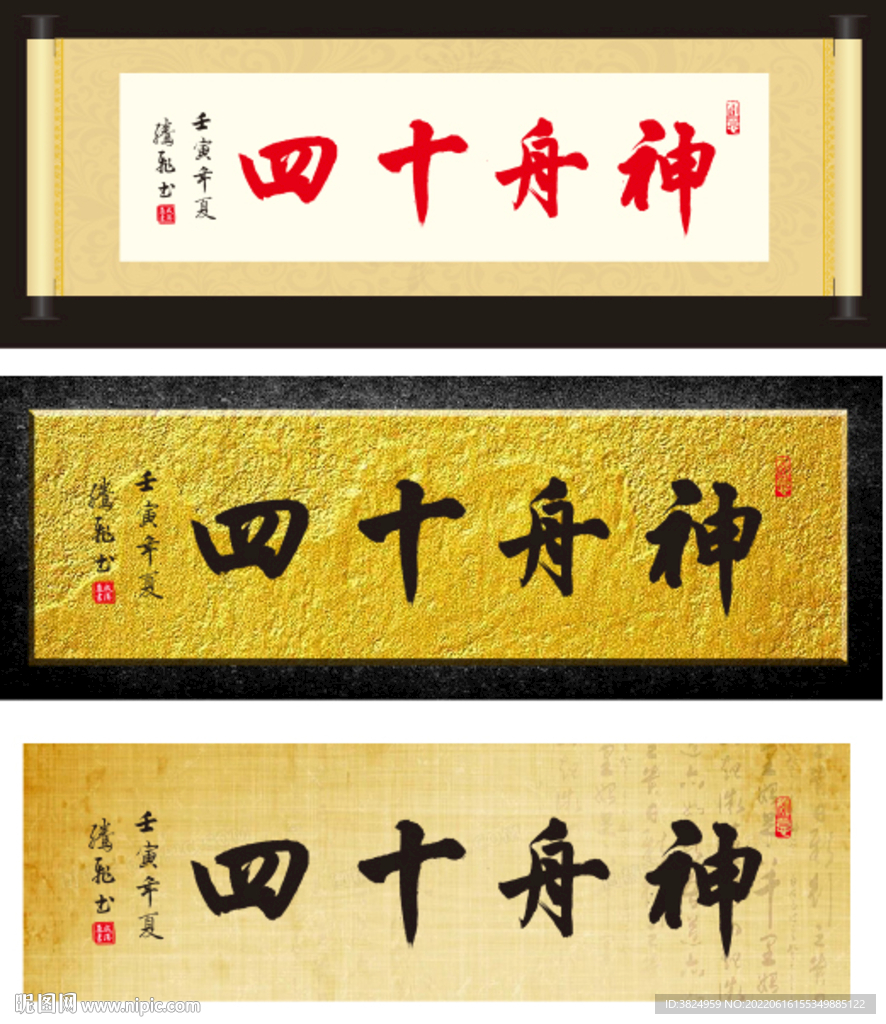 神舟十四
壬寅年夏
腾飞书
神舟十四
壬寅年夏
腾飞书
神舟十四
壬寅年夏
腾飞书
昵图网 www.nipic.com
ID:3824959 NO:20220616155349885122